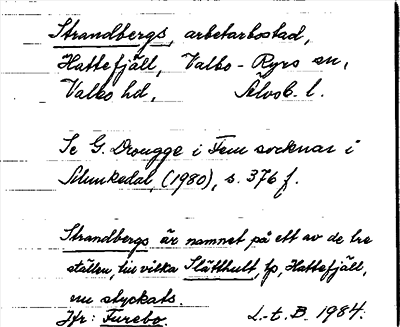 Strandbergs, arbetarbostad,
Hattefjäll, Valbo-Ryrs sn,
Valbo hd, Älvsb. l.
Se G. Drougge i Fem socknar i
Munkedal, (1980), s. 376 f.
Strandbergs är namnet på ett av de tre
ställen, till vilka Slätthult, lp, Hattefjäll,
nu styckats.
Jfr: Furebo. L-t. B. 1984.